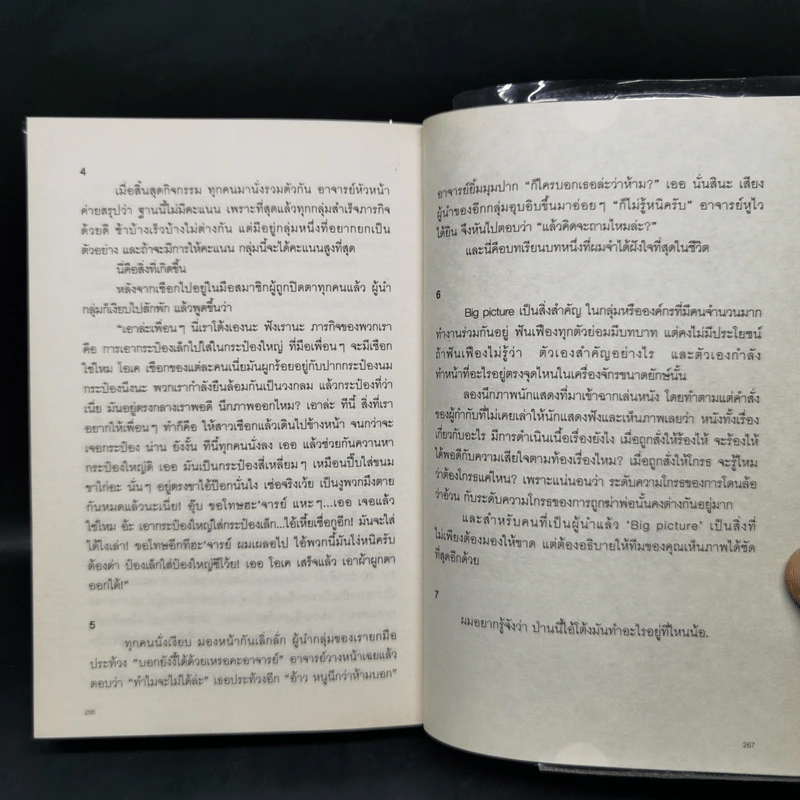 4
เมื่อสิ้นสุดกิจกรรม ทุกคนมานั่งรวมตัวกัน อาจารย์หัวหน้า
ค่ายสรุปว่า ฐานนี้ไม่มีคะแนน เพราะที่สุดแล้วทุกกลุ่มสำเร็จภารกิจ
ด้วยดี ช้าบ้างเร็วบ้างไม่ต่างกัน แต่มีอยู่กลุ่มหนึ่งที่อยากยกเป็น
ตัวอย่าง และถ้าจะมีการให้คะแนน กลุ่มนี้จะได้คะแนนสูงที่สุด
นี่คือสิ่งที่เกิดขึ้น
หลังจากเชือกไปอยู่ในมือสมาชิกผู้ถูกปิดตาทุกคนแล้ว ผู้นำ
กลุ่มก็เงียบไปสักพัก แล้วพูดขึ้นว่า
"เอาล่ะเพื่อนๆ นี่เราโต้งเองนะ ฟังเรานะ ภารกิจของพวกเรา
คือ การเอากระป๋องเล็กไปใส่ในกระป๋องใหญ่ ที่มือเพื่อนๆ จะมีเชือก
ใช่ไหม โอเค เชือกของแต่ละคนเนี่ยมันผูกร้อยอยู่กับปากกระป๋องนม
กระป๋องนึงนะ พวกเรากำลังยืนล้อมกันเป็นวงกลม แล้วกระป๋องที่ว่า
เนี่ย มันอยู่ตรงกลางเราพอดี นึกภาพออกไหม? เอาล่ะ ทีนี้ สิ่งที่เรา
อยากให้เพื่อนๆ ทำก็คือ ให้สาวเชือกแล้วเดินไปข้างหน้า จนกว่าจะ
เจอกระป๋อง น่าน ยังงั้น ทีนี้ทุกคนนั่งลง เออ แล้วช่วยกันควานหา
กระป๋องใหญ่ดิ เออ มันเป็นกระป๋องสี่เหลี่ยมๆ เหมือนปี๊บใส่ขนม
ขาไก่อะ นั่นๆ อยู่ตรงขาไอ้ป๊อกนั่นไง เซ่อจริงเว้ย เป็นงูพวกมึงตาย
กันหมดแล้วนะเนี่ย! อุ๊บ ขอโทษฮะ'จารย์ แหะๆ...เออ เจอแล้ว
ใช่ไหม อ้ะ เอากระป๋องใหญ่ใส่กระป๋องเล็ก...ไอ้เหี้ยเชื่อกูอีก! มันจะใส่
ได้ไงเล่า! ขอโทษอีกทีฮะ'จารย์ ผมเผลอไป ไอ้พวกนี้มันโง่หนิครับ
ต้องด่า ป๋องเล็กใส่ป๋องใหญ่ซีโว้ย! เออ โอเค เสร็จแล้ว เอาผ้าผูกตา
ออกได้!"
5
ทุกคนนั่งเงียบ มองหน้ากันเลิ่กลั่ก ผู้นำกลุ่มของเรายกมือ
ประท้วง "บอกยังงี้ได้ด้วยเหรอคะอาจารย์" อาจารย์วางหน้าเฉยแล้ว
ตอบว่า "ทำไมจะไม่ได้ล่ะ" เธอประท้วงอีก "อ้าว หนูนึกว่าห้ามบอก"
266
อาจารย์ยิ้มมุมปาก "ก็ใครบอกเธอล่ะว่าห้าม?" เออ นั่นสินะ เสียง
ผู้นำของอีกกลุ่มอุบอิบขึ้นมาอ่อยๆ "ก็ไม่รู้หนิครับ" อาจารย์หูไว
ได้ยิน จึงหันไปตอบว่า "แล้วคิดจะถามไหมล่ะ?"
และนี่คือบทเรียนบทหนึ่งที่ผมจำได้ฝังใจที่สุดในชีวิต
6
Big picture เป็นสิ่งสำคัญ ในกลุ่มหรือองค์กรที่มีคนจำนวนมาก
ทำงานร่วมกันอยู่ ฟันเฟืองทุกตัวย่อมมีบทบาท แต่คงไม่มีประโยชน์
ถ้าฟันเฟืองไม่รู้ว่า ตัวเองสำคัญอย่างไร และตัวเองกำลัง
ทำหน้าที่อะไรอยู่ตรงจุดไหนในเครื่องจักรขนาดยักษ์นั้น
ลองนึกภาพนักแสดงที่มาเข้าฉากเล่นหนัง โดยทำตามแต่คำสั่ง
ของผู้กำกับที่ไม่เคยเล่าให้นักแสดงฟังและเห็นภาพเลยว่า หนังทั้งเรื่อง
เกี่ยวกับอะไร มีการดำเนินเนื้อเรื่องยังไง เมื่อถูกสั่งให้ร้องไห้ จะร้องไห้
ได้พอดีกับความเสียใจตามท้องเรื่องไหม? เมื่อถูกสั่งให้โกรธ จะรู้ไหม
ว่าต้องโกรธแค่ไหน? เพราะแน่นอนว่า ระดับความโกรธของการโดนล้อ
ว่าอ้วน กับระดับความโกรธของการถูกฆ่าพ่อนั้นคงต่างกันอยู่มาก
และสำหรับคนที่เป็นผู้นำแล้ว 'Big picture' เป็นสิ่งที่
ไม่เพียงต้องมองให้ขาด แต่ต้องอธิบายให้ทีมของคุณเห็นภาพได้ชัด
ที่สุดอีกด้วย
7
ผมอยากรู้จังว่า ป่านนี้ไอ้โต้งมันทำอะไรอยู่ที่ไหนน้อ.
267